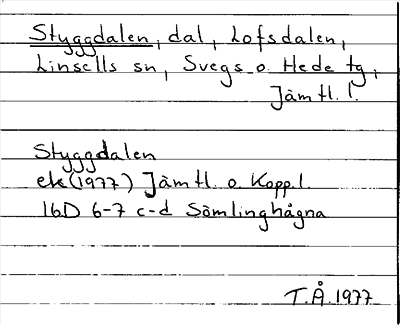 Styggdalen, dal, Lofsdalen,
Linsells sn, Svegs o. Hede tg,
Jämtl. l.
Styggdalen
ek (1977) Jämtl. o. Kopp. l.
16D 6-7 c-d Sömlinghågna
T.Å. 1977